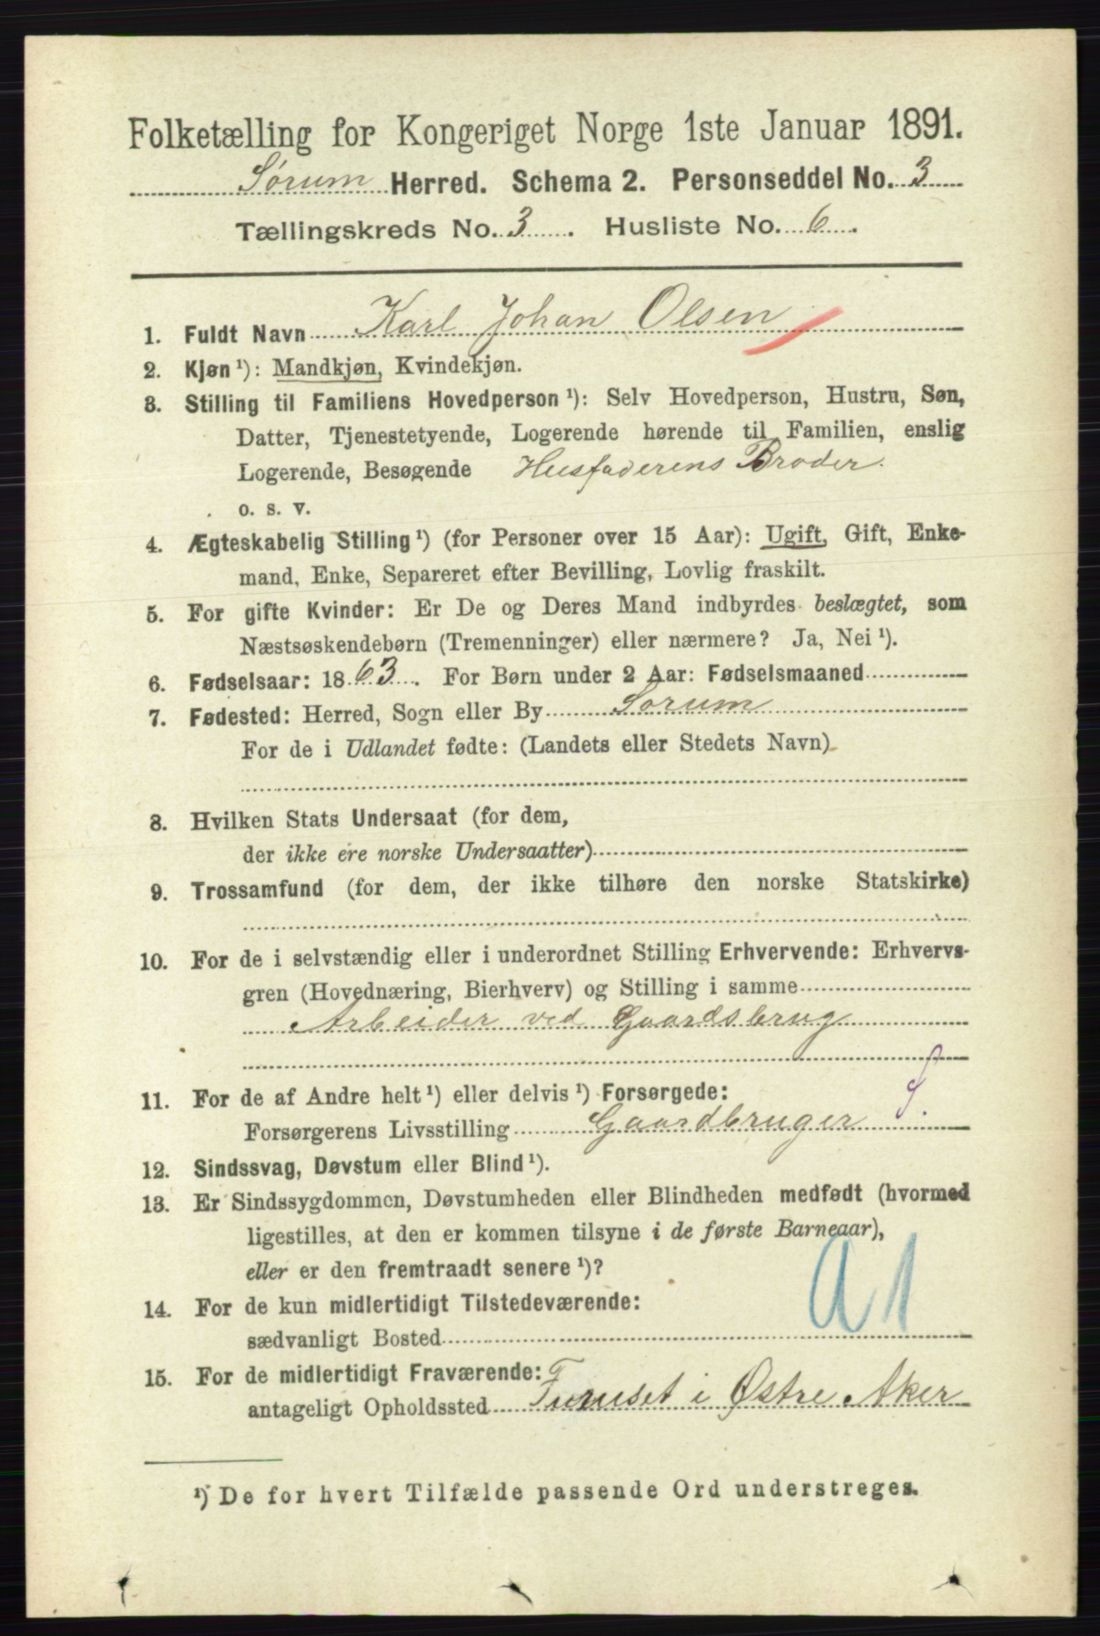 Folketælling for Kongeriget Norge 1ste Januar 1891.
Sørum Herred. Schema 2. Personseddel No. 3
Tællingskreds No. 3. Husliste No. 6.
1. Fuldt Navn Karl Johan Olsen
2. Kjøn ¹): Mandkjøn, Kvindekjøn.
3. Stilling til Familiens Hovedperson ¹): Selv Hovedperson, Hustru, Søn,
Datter, Tjenestetyende, Logerende hørende til Familien, enslig
Logerende, Besøgende Husfaderens Broder.
o. s. v.
4. Ægteskabelig Stilling ¹) (for Personer over 15 Aar): Ugift, Gift, Enke-
mand, Enke, Separeret efter Bevilling, Lovlig fraskilt.
5. For gifte Kvinder: Er De og Deres Mand indbyrdes beslægtet, som
Næstsøskendebørn (Tremenninger) eller nærmere? Ja, Nei ¹).
6. Fødselsaar: 1863. For Børn under 2 Aar: Fødselsmaaned
7. Fødested: Herred, Sogn eller By Sorum
For de i Udlandet fødte: (Landets eller Stedets Navn)
8. Hvilken Stats Undersaat (for dem,
der ikke ere norske Undersaatter)
9. Trossamfund (for dem, der ikke tilhøre den norske Statskirke)
10. For de i selvstændig eller i underordnet Stilling Erhvervende: Erhvervs-
gren (Hovednæring, Bierhverv) og Stilling i samme
Arbeider ved Gaardsbrug
11. For de af Andre helt ¹) eller delvis ¹) Forsørgede: S.
Forsørgerens Livsstilling Gaardbruger
12. Sindssvag, Døvstum eller Blind ¹).
13. Er Sindssygdommen, Døvstumheden eller Blindheden medfødt (hvormed
ligestilles, at den er kommen tilsyne i de første Barneaar),
eller er den fremtraadt senere ¹)?
a 1
14. For de kun midlertidigt Tilstedeværende:
sædvanligt Bosted
15. For de midlertidigt Fraværende:
antageligt Opholdssted Furuset i Østre Aker
¹) De for hvert Tilfælde passende Ord understreges.